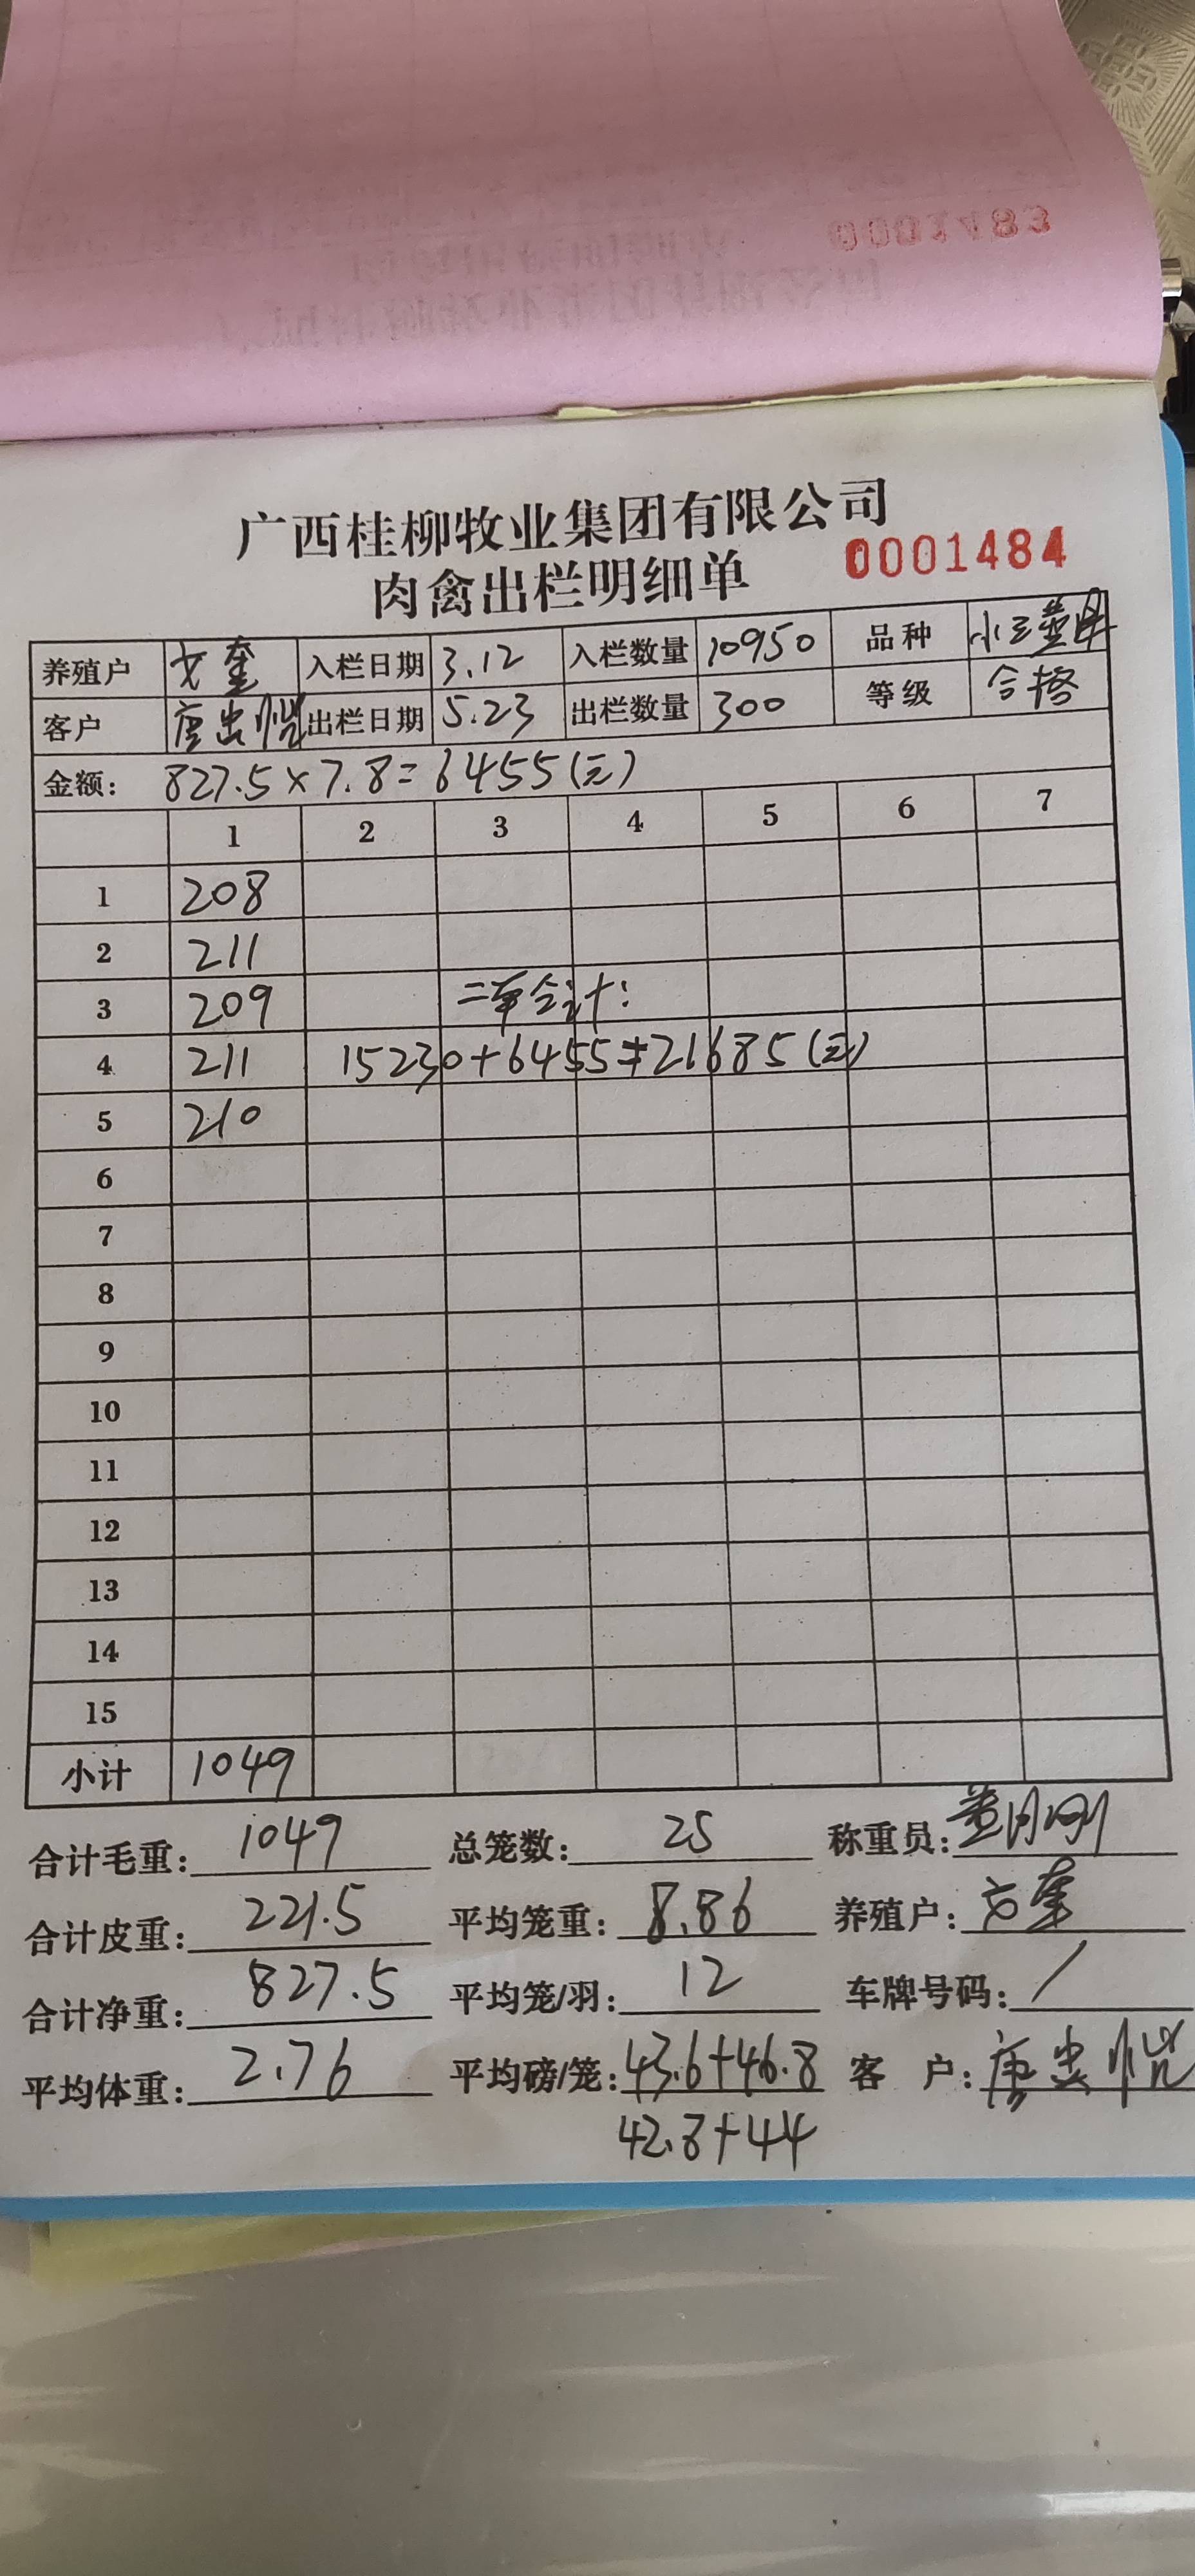 0001483
广西桂柳牧业集团有限公司
肉禽出栏明细单 0001484
养殖户 方奎 入栏日期 3.12 入栏数量 10950 品种 小三黄
客户 唐忠 出栏日期 5.23 出栏数量 300 等级 合格
金额: 827.5×7.8=6455(元)
1 2 3 4 5 6 7
1 208
2 211
3 209 二单合计:
4 211 15230+6455=21685(元)
5 210
6
7
8
9
10
11
12
13
14
15
小计 1049
合计毛重: 1049 总笼数: 25 称重员: 黄月刚
合计皮重: 221.5 平均笼重: 8.86 养殖户: 方奎
合计净重: 827.5 平均笼/羽: 12 车牌号码: /
平均体重: 2.76 平均磅/笼: 43.6+46.8 客 户: 唐忠
42.8+44